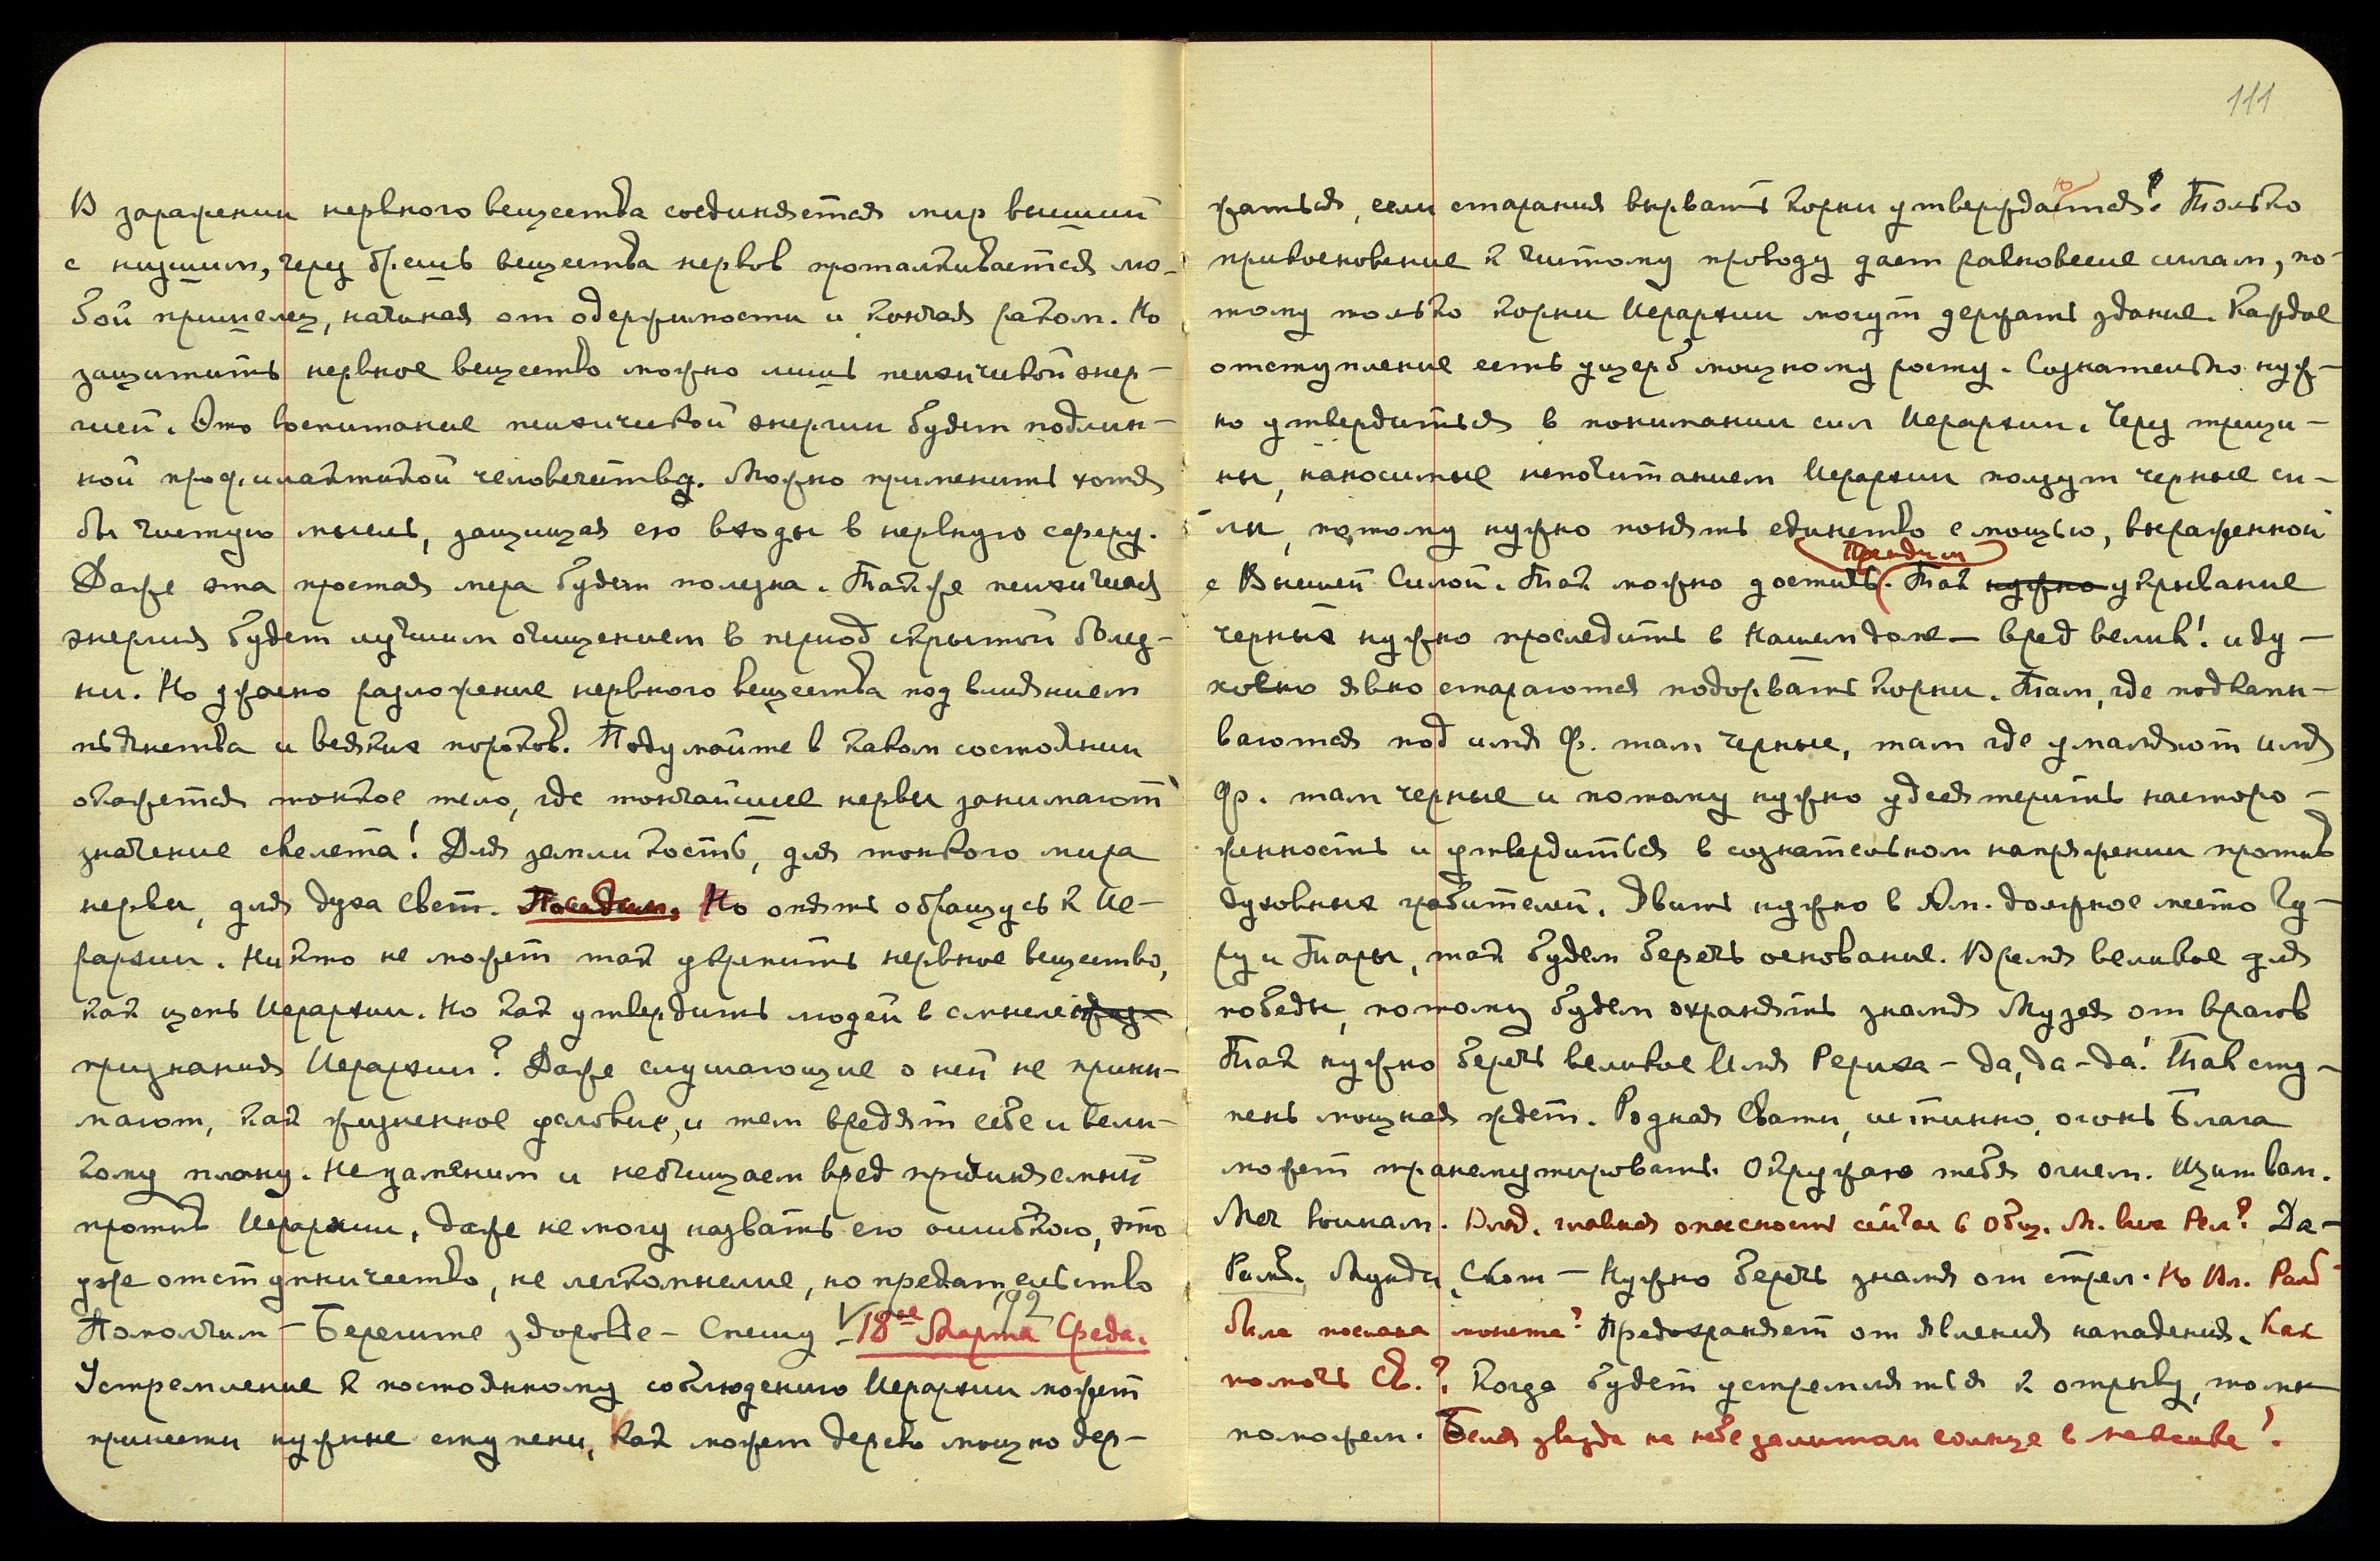 В заражении нервного вещества соединяется мир высший
с низшим, через брешь вещества нервов проталкивается лю-
бой пришелец, начиная от одержимости и кончая раком. Но
защитить нервное вещество можно лишь психической энер-
гией. Это воспитание психической энергии будет подлин-
ной профилактикой человечества. Можно применить хотя
бы чистую мысль, защищая ею входы в нервную сферу.
Даже эта простая мера будет полезна. Также психическая
энергия будет лучшим очищением в период скрытой болез-
ни. Но ужасно разложение нервного вещества под влиянием
пьянства и всяких пороков. Подумайте в каком состоянии
окажется тонкое тело, где тончайшие нервы занимают
значение скелета! Для земли кость, для тонкого мира
нервы, для духа свет. Но опять обращусь к Ие-
рархии. Никто не может так укрепить нервное вещество,
как цепь Иерархии. Но как утвердить людей в смысле
признания Иерархии? Даже слушающие о ней не прини-
мают, как жизненное условие, и тем вредят себе и вели-
кому плану. Незаменим и неочищаем вред причиняемый
против Иерархии, даже не могу назвать его ошибкою, это
уже отступничество, не легкомыслие, но предательство
Помолчим – Берегите здоровье – Спешу 18ое Марта Среда.
Устремление к постоянному соблюдению Иерархии может
принести нужные ступени, Как может дерево мощно дер-
111
жаться, если старания вырвать корни утверждаются? Только
прикосновение к чистому проводу дает равновесие силам, по-
тому только корни Иерархии могут держать здание. Каждое
отступление есть ущерб мощному росту. Сознательно нуж-
но утвердиться в понимании сил Иерархии. Через трещи-
ны, наносимые непочитанием Иерархии ползут черные си-
лы, потому нужно понять единство с мощью, выраженной
с Высшей Силой. Так можно достичь. Так нужно укрывание
черных нужно проследить в Нашем доме – вред велик! и ду-
ховно явно стараются подорвать корни. Там, где подкапы-
ваются под имя Ф. там черные, там где умаляют имя
Ф. там черные и потому нужно удесятерить насторо-
женность и утвердиться в сознательном напряжении против
духовных грабителей. Явить нужно в Ам. должное место Гу-
ру и Тары, так будем беречь основание. Время великое для
победы, потому будем охранять знамя Музея от врагов
Так нужно беречь великое Имя Рериха – да, да – да! Так сту-
пень мощная ждет. Родная Свати, истинно, огонь Блага
может трансмутировать. Окружаю тебя огнем. Щит вам.
Меч воинам. Влад. главная опасность сейчас в Общ. М. Да –
Скот – Нужно беречь знамя от стрел. Но Вл.
была послана монета? Предохраняет от явления нападения. Как
помочь Св.? Когда будет устремляться к отрыву,
поможем. Белая звезда на небе